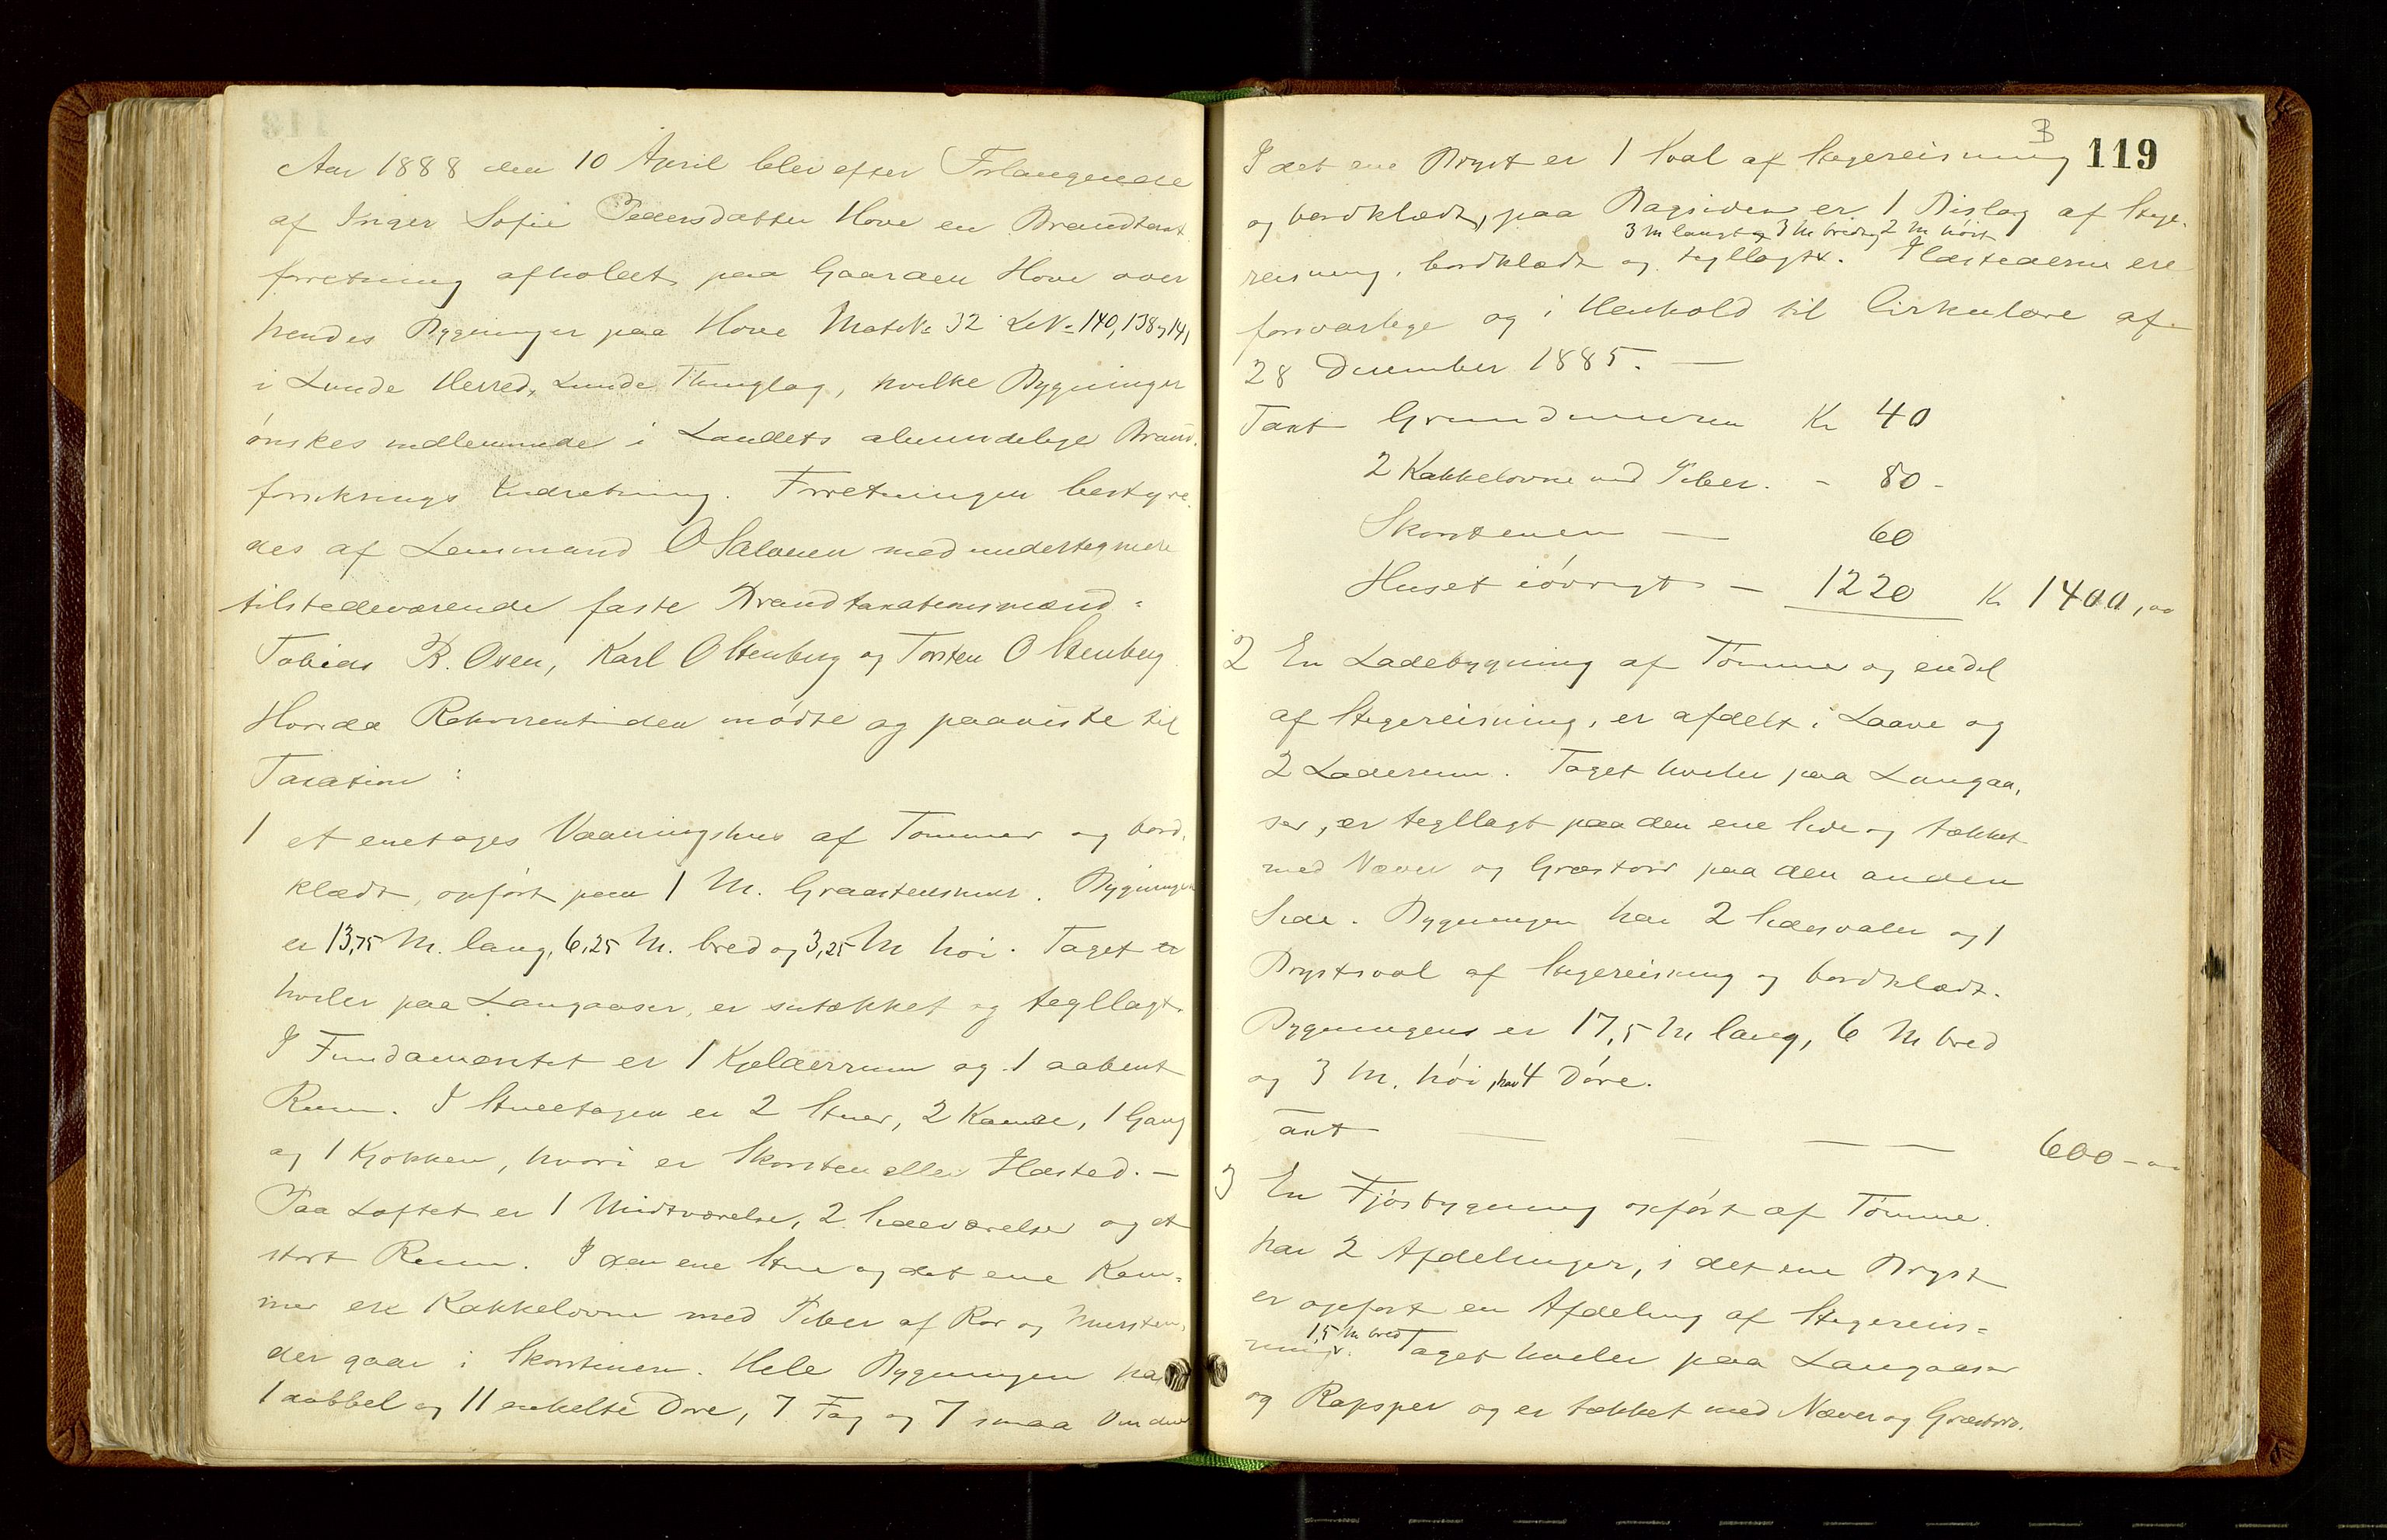 Aar 1888 den 10 April blev efter Forlangende
af Inger Sofie Pedersdatter Hove en Brandtaxt
forretning afholdt paa Gaarden Hove over
hendes Bygninger paa Hove Matr № 32 L№ 140, 138 og 141
i Lunde Herred, Lunde Thinglag, hvilke Bygninger
ønskes indlemmede i Landets almindelige Brand-
forsikrings Indretning. Forretningen besty-
des af Lensmand O Salvesen med undertegnede
tilstedeværende faste Brandtaxationsmænd:
Tobias R. Oxen, Karl O Stenberg og Torsten O Stenberg
Hovda Rekvirentinden mødte og paaviste til
Taxation:
1 et enetages Vaaningshus af Tømmer og bord-
klædt, opført paa 1 M. Graastensmur. Bygningen
er 13,75 M. lang, 6,25 M. bred og 3,25 M høi. Taget
hviler paa Langaaser, er sutækket og tegllagt.
I Fundamentet er 1 Kjelderrum og 1 aabent
Rum. I Stueetagen er 2 Stuer, 2 Kamre, 1 Gang
og 1 Kjøkken, hvori er Skorsten eller Ildsted. —
Paa Loftet er 1 Midtværelse, 2 Sideværelser og et
stort Rum. I den ene Stue og det ene Kam-
mer ere Kakkelovne med Piber af Rør og Mursten,
der gaar i Skorstenen. Hele Bygningen har
1 dobbel og 11 enkelte Døre, 7 Fag og 7 smaa Vinduer
119
I det ene Bryst er 1 Sval af Stegereisning
og bordklædt, paa Bagsiden er 1 Bislag af Stege-
3 M langt og 3 M bredt og 2 M høit
reisning, bordklædt og tegllagt x. Ildstederne ere
forsvarlige og i Henhold til Cirkulære af
28 December 1885. —
Taxt Grundmuren Kr 40
2 Kakkelovne med Piber. - 80 -
Skorstenen — 60
Huset iøvrigt — 1220 Kr 1400,00
2 En Ladebygning af Tømmer og endel
af Stegereisning, er afdelt i Laave og
2 Laderum. Taget hviler paa Langaa-
ser, er tegllagt paa den ene Side og tækket
med Næver og Græstorv paa den anden
Side. Bygningen har 2 Sidesvaler og 1
Brystsval af Stegereisning og bordklædt.
Bygningens er 17,5 M lang, 6 M bred
og 3 M. høi, har 4 Døre.
Taxt — — — — 600 - 00
3 En Fjøsbygning opført af Tømmer.
har 2 Afdelinger, i det ene Bryst
er opført en Afdeling af Stegereis-
1,5 M bred
ning x. Taget hviler paa Langaaser
og Rapsper og er tækket med Næver og Græstorv.